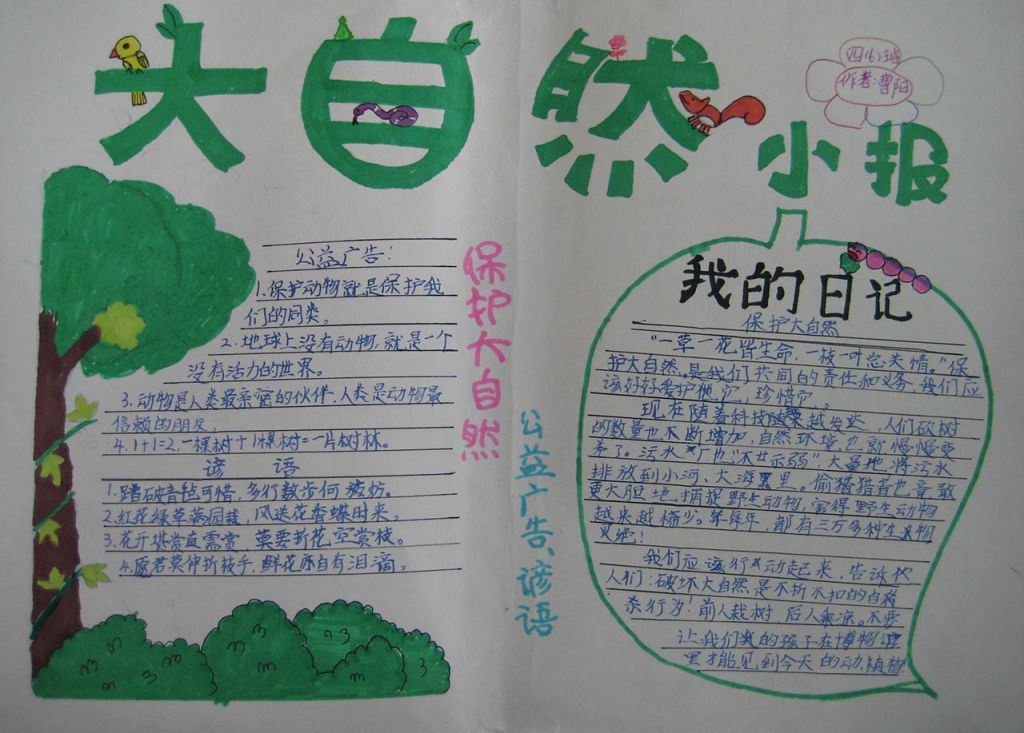 大自然小报
作者:曹阳
公益广告:
1.保护动物就是保护我
们的同类。
2.地球上没有动物,就是一个
没有活力的世界。
3.动物是人类最亲密的伙伴,人类是动物最
信赖的朋友。
4.1+1=2,一棵树+1棵树=一片树林。
谚语
1.踏破青毡可惜,多行数步何妨。
2.红花绿草满园栽,风送花香蝶自来。
3.花开堪赏直需赏,莫要折花空赏枝。
4.愿君莫伸折枝手,鲜花亦自有泪滴。
保护大自然
公益广告、谚语
我的日记
保护大自然
"一草一花皆生命,一枝一叶总关情。"保
护大自然,是我们共同的责任和义务。我们应
该好好爱护它,珍惜它。
现在随着科技越来越发达,人们砍树
的数量也不断增加,自然环境也就慢慢变
差了。污水厂也"不甘示弱"大量地将污水
排放到小河、大海里。偷猎者也竟敢
更大胆地捕捉野生动物,害得野生动物
越来越稀少。每年,都有三万多种生物
灭绝!
我们应该行动起来,告诉
人们:破坏大自然是不折不扣的自
杀行为!前人栽树后人乘凉。不要
让我们的孩子在博物馆
里才能见到今天的动植物